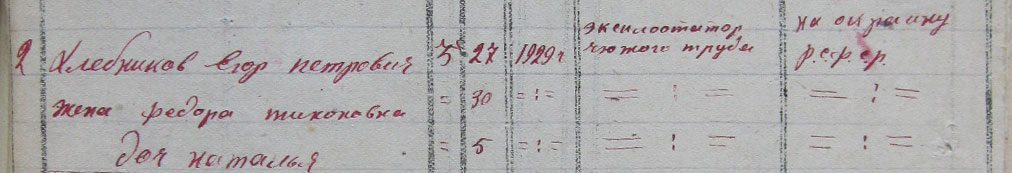 2 Хлебников Егор петрович 3 27 1929 г эксплоататор чюжого труда на окраину р.с.ф.ср.
жена федора тихоновна = 30 =:= = : = = : =
доч наталья = 5 =:= = : = = : =